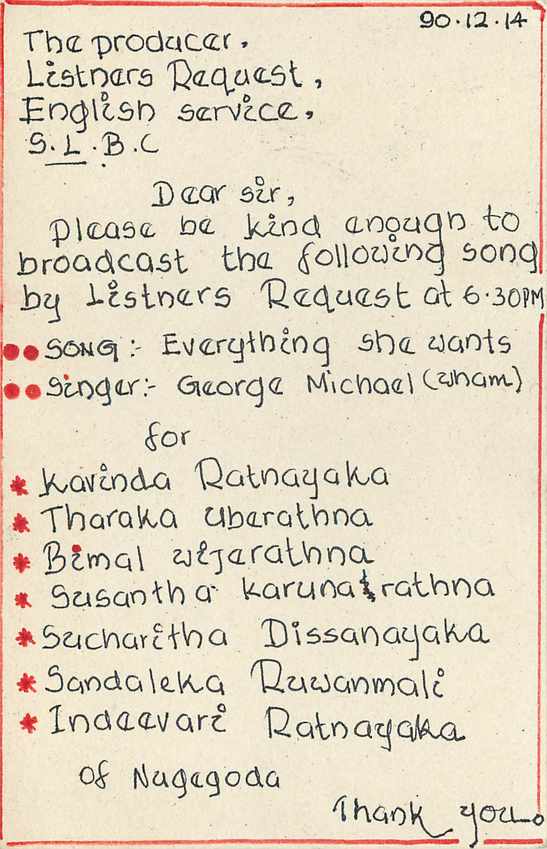 90.12.14
The producer.
Listners Request,
English service.
S.L.B.C
Dear sir,
Please be kind enough to
broadcast the following song
by Listners Request at 6.30PM
SONG :- Everything she wants
Singer:- George Michael (wham)
for
* Kavinda Ratnayaka
* Tharaka Uberathna
* Bimal wijerathna
* Susantha karunatrathna
* Sucharitha Dissanayaka
* Sandaleka Ruwanmali
* Indeevari Ratnayaka
of Nugegoda
Thank you.